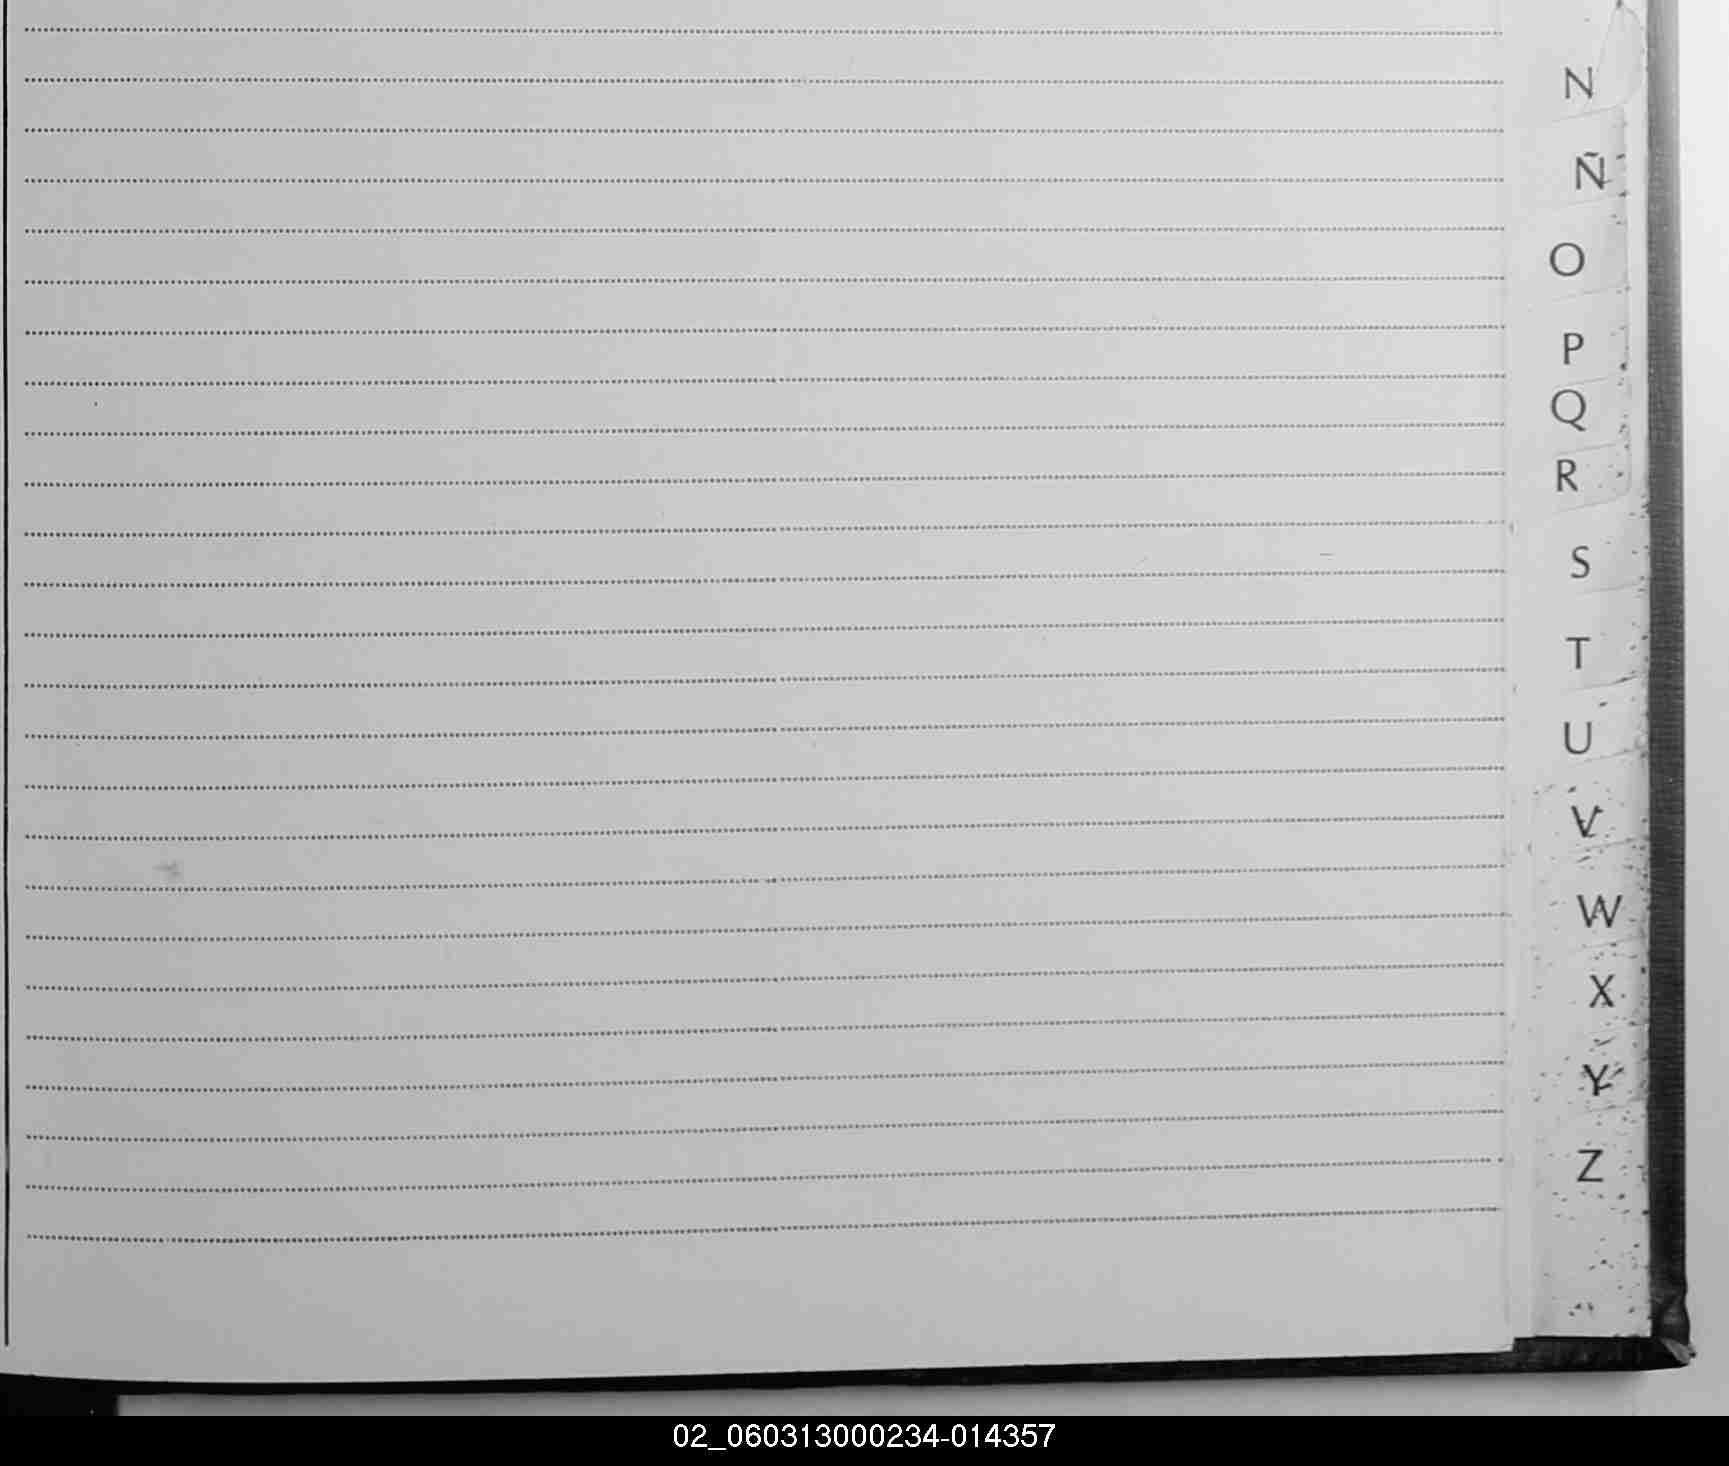 N
Ñ
O
P
Q
R
S
T
U
V
W
X
Y
Z
02_060313000234-014357